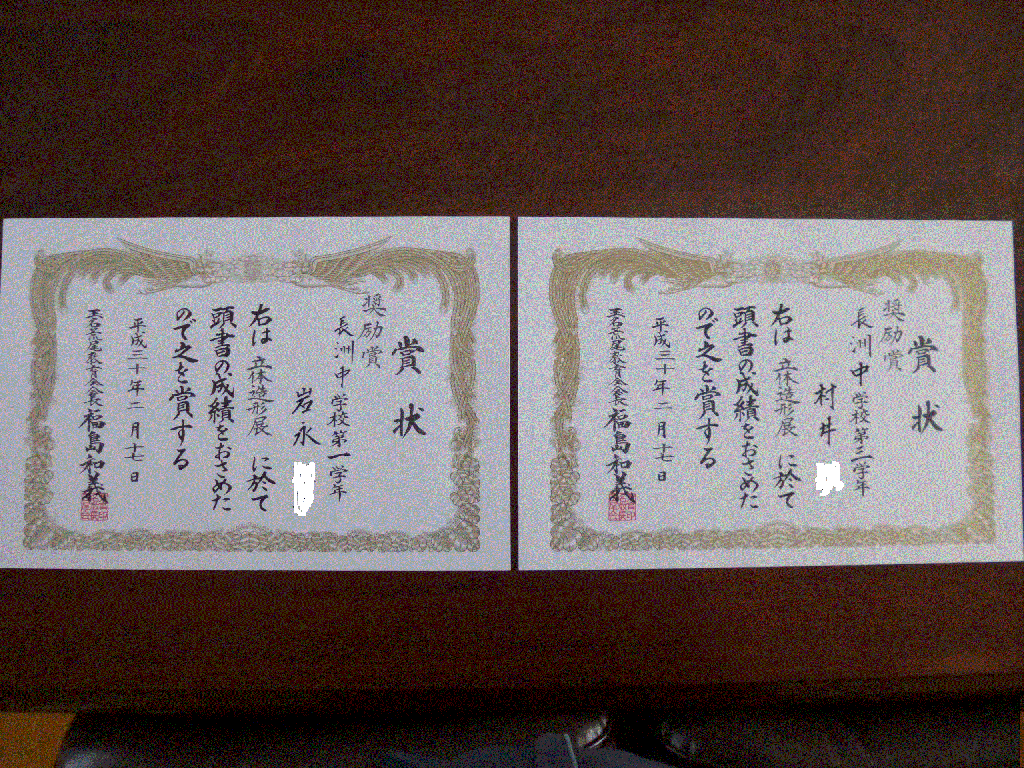 賞状
奨励賞
長洲中学校第一学年
岩永
右は 立体造形展 に於て
頭書の成績をおさめた
ので之を賞する
平成三十年二月十七日
福島和義
賞状
奨励賞
長洲中学校第三学年
村井
右は 立体造形展 に於て
頭書の成績をおさめた
ので之を賞する
平成三十年二月十七日
福島和義